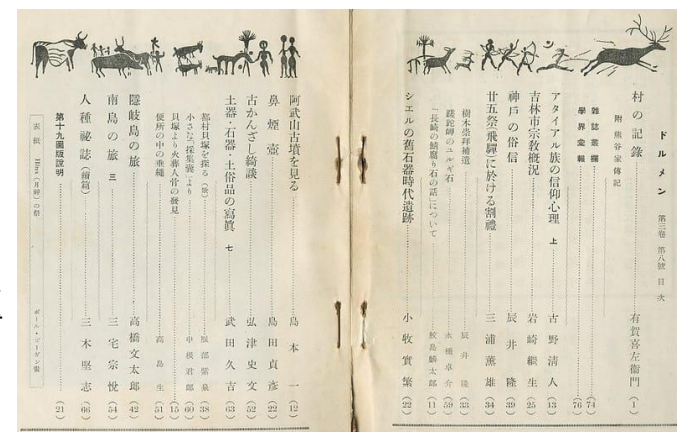 ドルメン 第三卷 第八號 目次
村の記錄 有賀喜左衞門 (1)
附 熊谷家傳記
雜誌叢欄 (74)
學界彙報 (76)
アタイアル族の信仰心理 上 古野淸人 (13)
吉林市宗敎槪況 岩崎繼生 (25)
神戶の俗信 辰井隆 (39)
廿五祭(飛驒)に於ける割禮 三浦薰雄 (34)
樹木崇拜補遺 辰井隆 (33)
躄蛇師のユルギ石 水橋卓介 (59)
「長崎の鯖腐り石の話」について 鮫島麟太郞 (11)
シエルの舊石器時代遺跡 小牧實繁 (22)
阿武山古墳を見る 島本一 (12)
鼻煙壺 島田貞彥 (22)
古かんざし綺談 弘津史文 (52)
土器・石器・土俗品の寫眞 七 武田久吉 (63)
都村貝塚を探る 服部紫泉 (38)
小さな「採集囊」より 中根君郞 (60)
貝塚より火葬人骨の發見 (15)
便所の中の垂繩 高島生 (51)
隱岐島の旅 高橋文太郞 (42)
南島の旅 三 三宅宗悅 (54)
人種祕誌(續篇) 三木堅志 (66)
第十九圖版說明 (21)
表紙 Hina (月神)の祭 ポール・ゴーガン畫